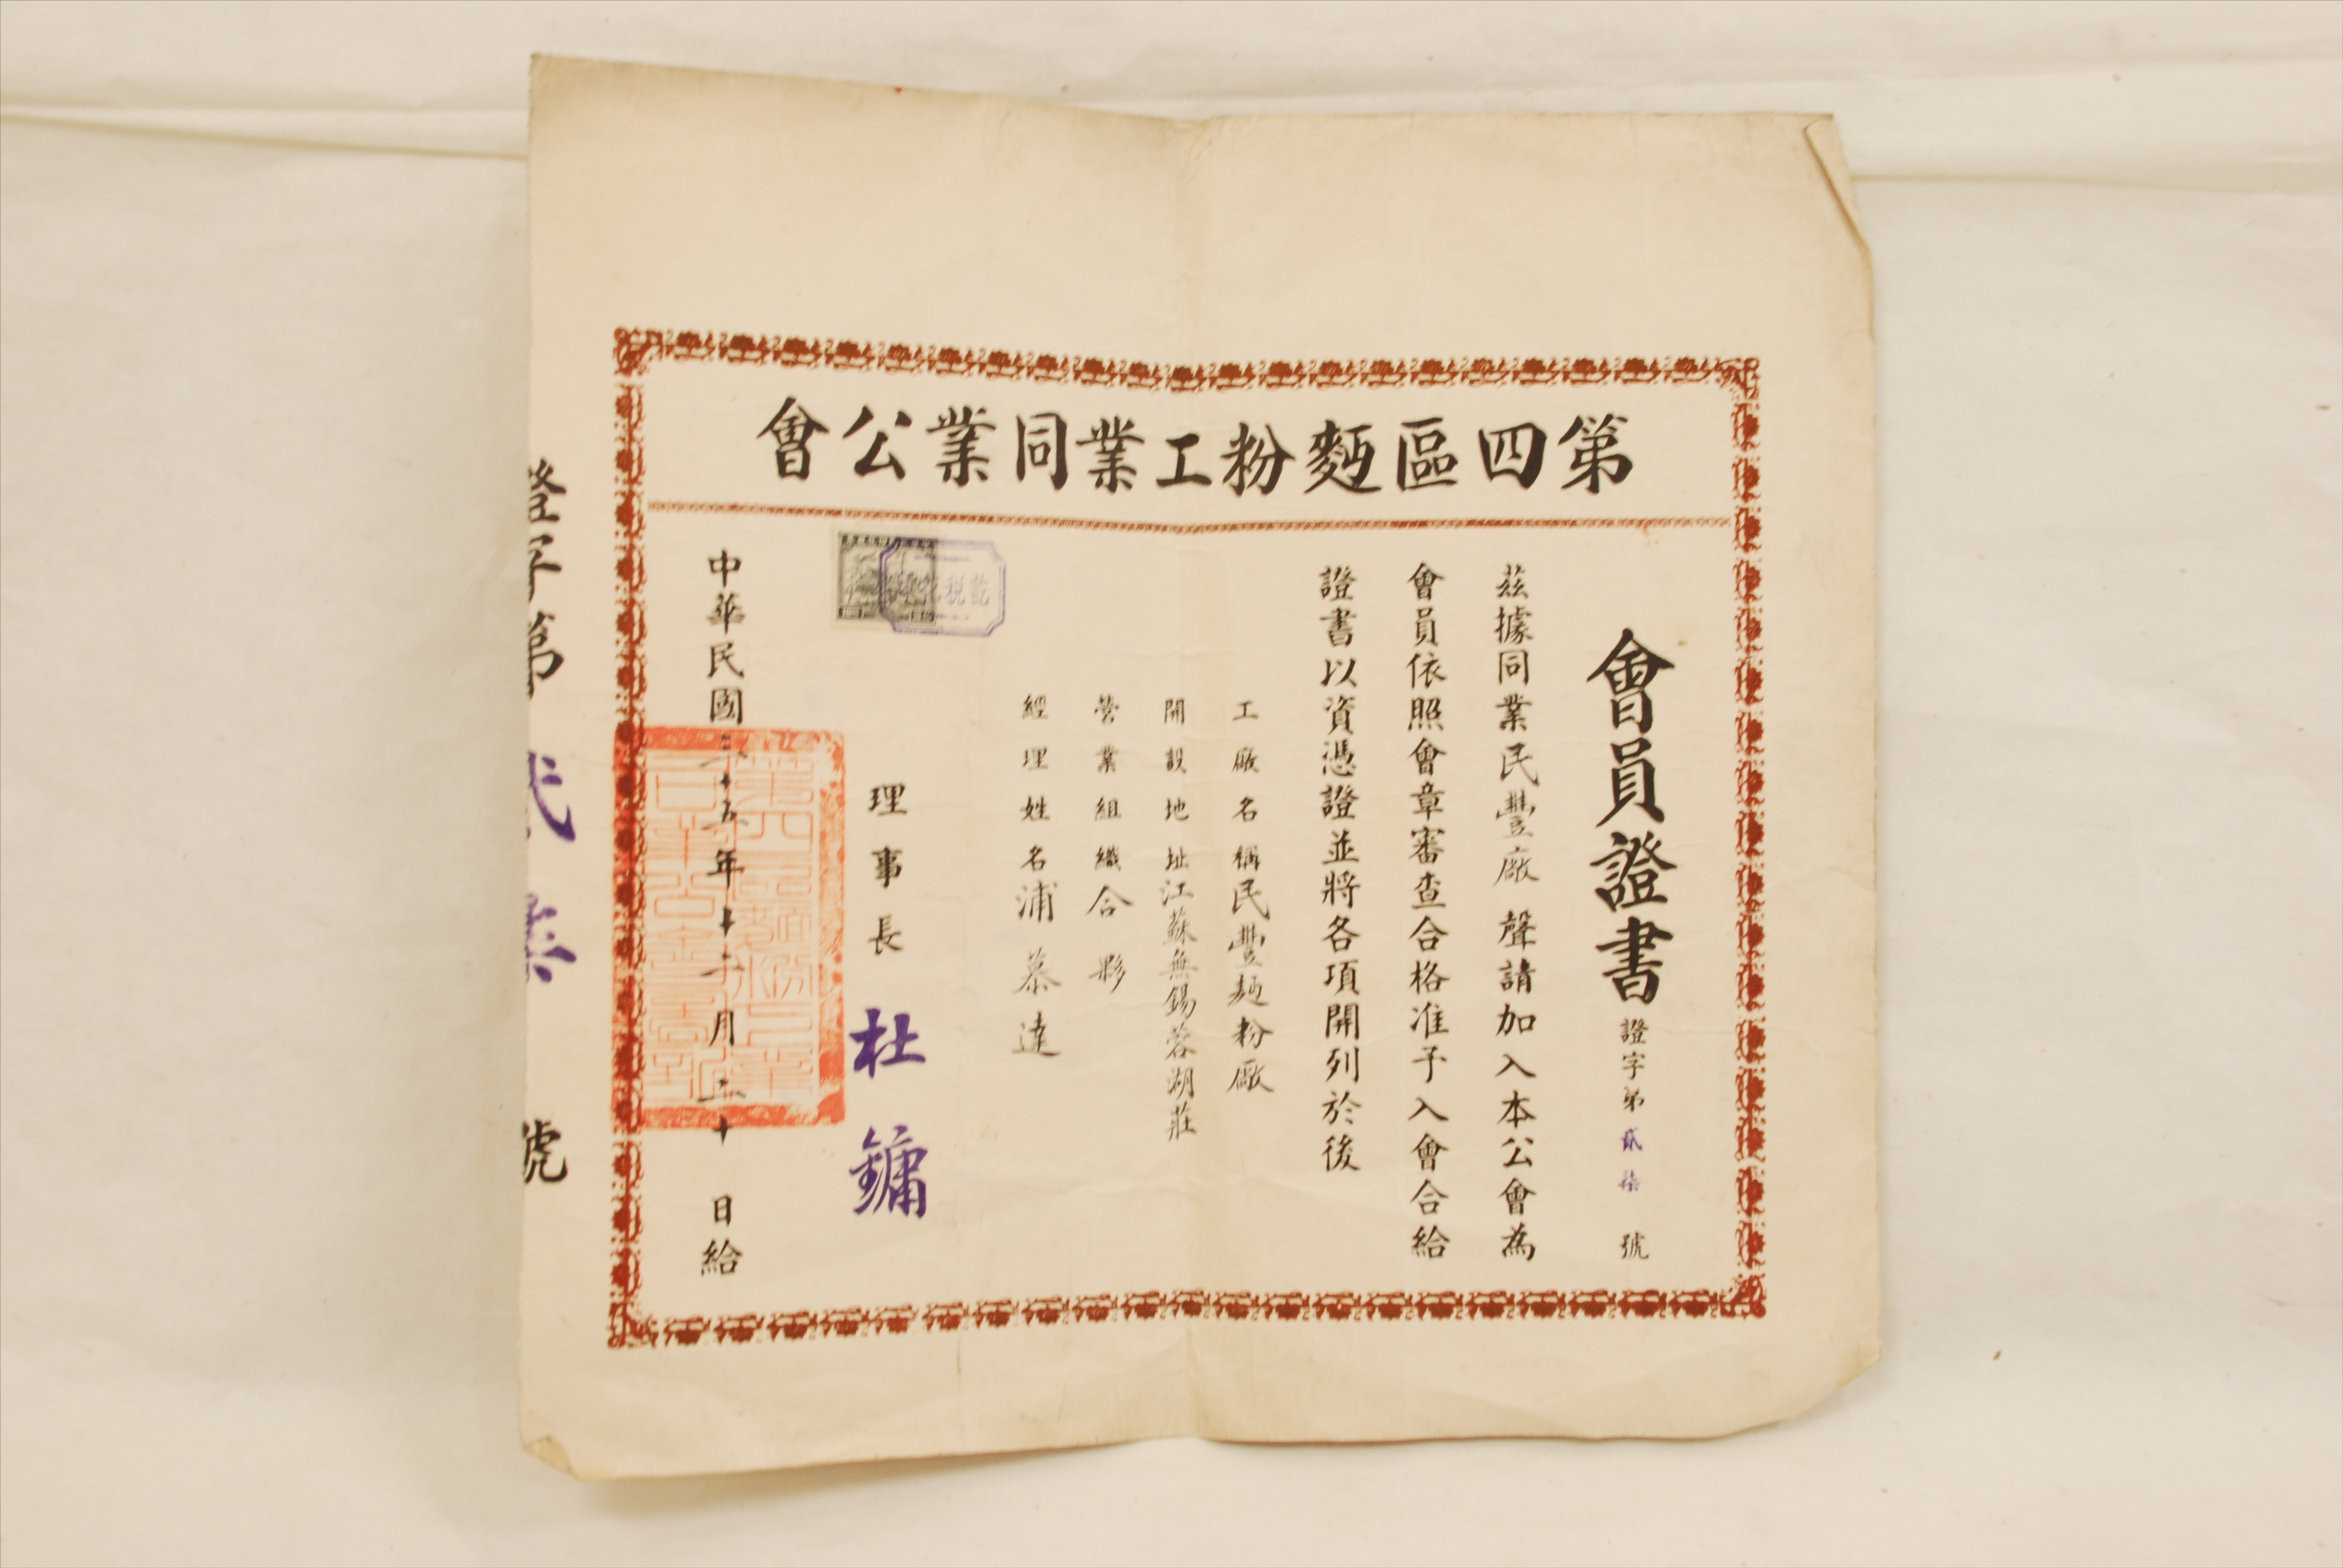 第四區麪粉工業同業公會
會員證書
證字第貳柒號
茲據同業民豐廠聲請加入本公會為
會員依照會章審查合格准予入會合給
證書以資憑證並將各項開列於後
工廠名稱民豐麵粉廠
開設地址江蘇無錫蓉湖莊
營業組織合夥
經理姓名浦慕達
理事長 杜鏞
中華民國三十五年十二月二十日給
證字第貳柒號